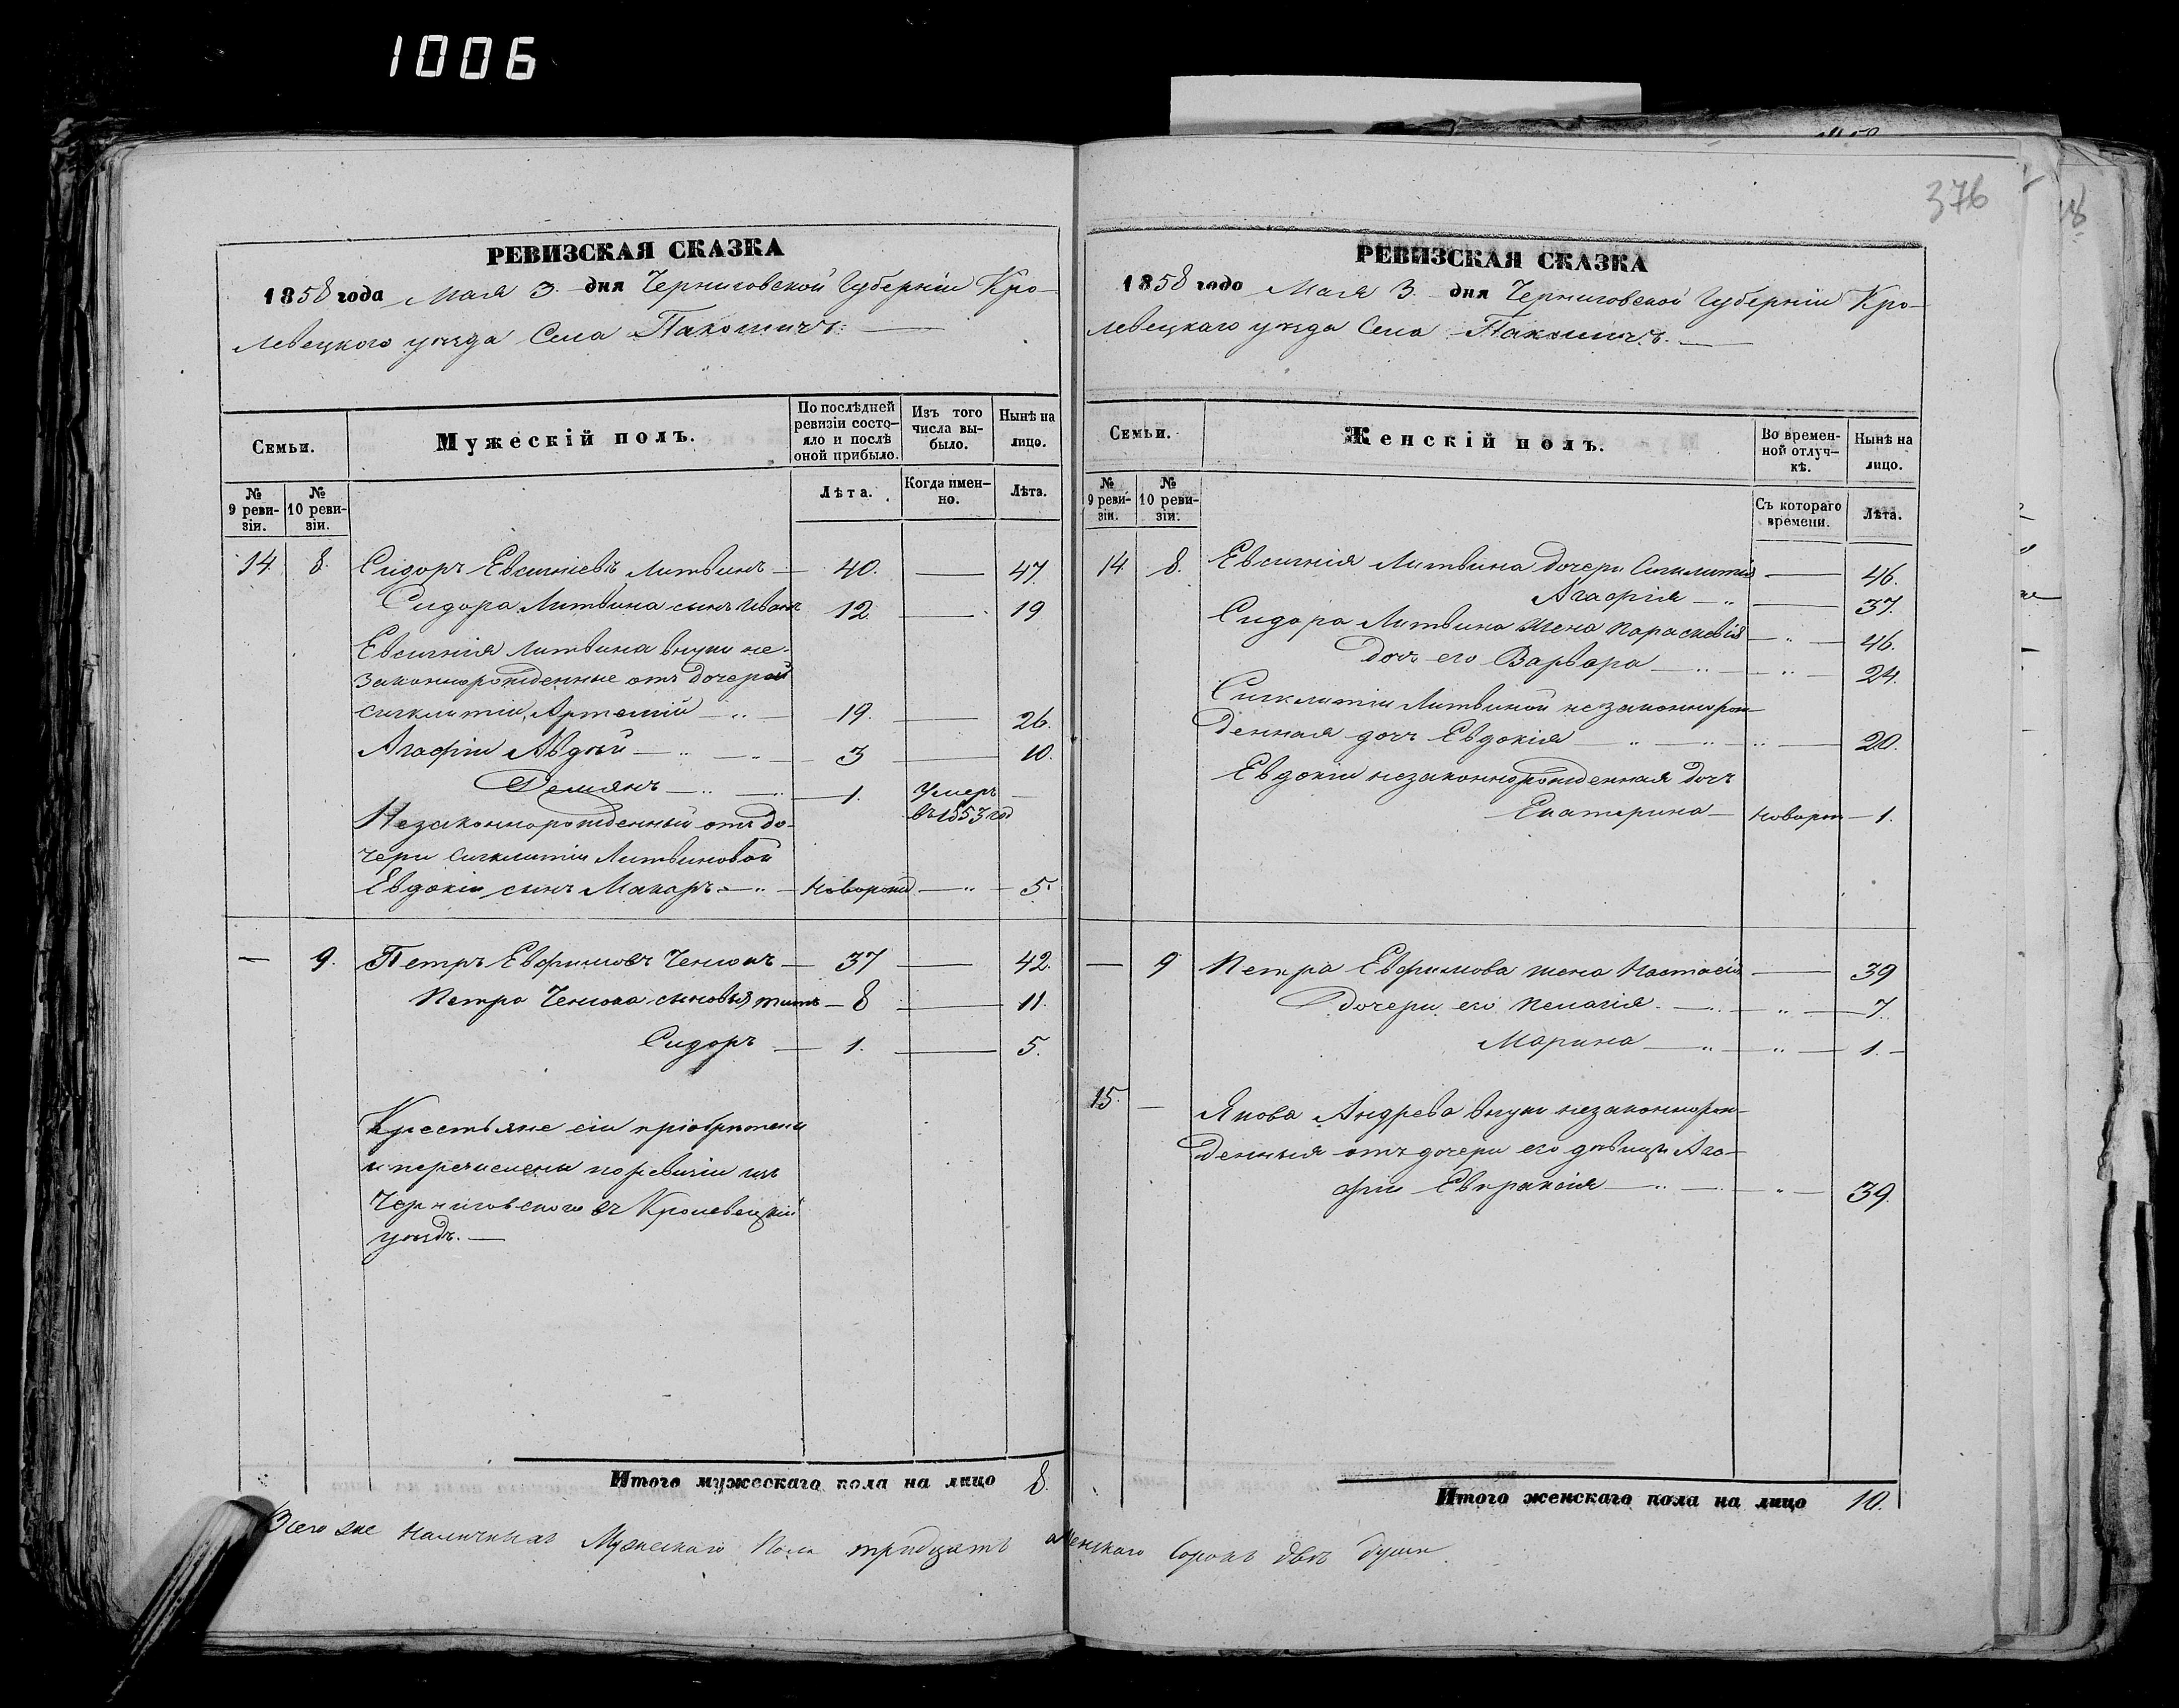 1006
376
РЕВИЗСКАЯ СКАЗКА
1858 года Мая 3. дня Черниговской Губерніи Кро-
левецкого уѣзда Села Пакошичъ.
Семьи.
Мужескій полъ.
По послѣдней ревизіи состо-яло и послѣ оной прибыло.
Изъ того числа вы-было.
Нынѣ на лицо.
№ 9 реви-зіи.
№ 10 реви-зіи.
Лѣта.
Когда имен-но.
Лѣта.
14. 8. Сидоръ Евсигніевъ Литвинъ — 40. — 47.
Сидора Литвина сынъ Иванъ 12. — 19
Евсигнія Литвина внуки не-
законнорожденные отъ дочерей
Сигклитіи, Артемій — 19. — 26.
Агафіи Авдѣй — 3 — 10.
Демянъ — 1. Умеръ —
въ 1853 год
Незаконнорожденный отъ до-
чери Сигклитіи Литвиновой
Евдокіи сынъ Макаръ — Новорожд — 5.
— 9. Петръ Евфимовъ — 37 — 42.
Петра сыновья Титъ — 8 — 11.
Сидоръ — 1. — 5.
Крестьяне сіи пріобрѣтени
и перечислены по ревизіи изъ
Черниговского въ Кролевецкій
уѣздъ. —
Итого мужескаго пола на лицо 8.
РЕВИЗСКАЯ СКАЗКА
1858 года Мая 3. дня Черниговской Губерніи Кро-
левецкаго уѣзда Села Пакошичъ.
Семьи.
Женскій полъ.
Во времен-ной отлуч-кѣ.
Нынѣ на лицо.
№ 9 реви-зіи.
№ 10 реви-зіи.
Съ котораго времени.
Лѣта.
14. 8. Евсигнія Литвина дочери Сигклитія — 46.
Агафія — 37.
Сидора Литвина жена Параскевія — 46.
Дочь его Варвара — 24.
Сигклитіи Литвиной незаконнорож-
денная дочь Евдокія — 20.
Евдокіи незаконнорожденная дочь
Екатерина — Новорож — 1.
— 9 Петра Евфимова жена Настасія — 39
Дочери его Пелагія — 7.
Марина — 1. —
15. — Якова Андрева внуки незаконнорож-
денныя отъ дочери его дѣвицы Ага-
фіи Евпраксія — 39.
Итого женскаго пола на лицо 10.
Всего же наличныхъ Мужескаго Пола тридцать Женскаго Сорокъ двѣ души.